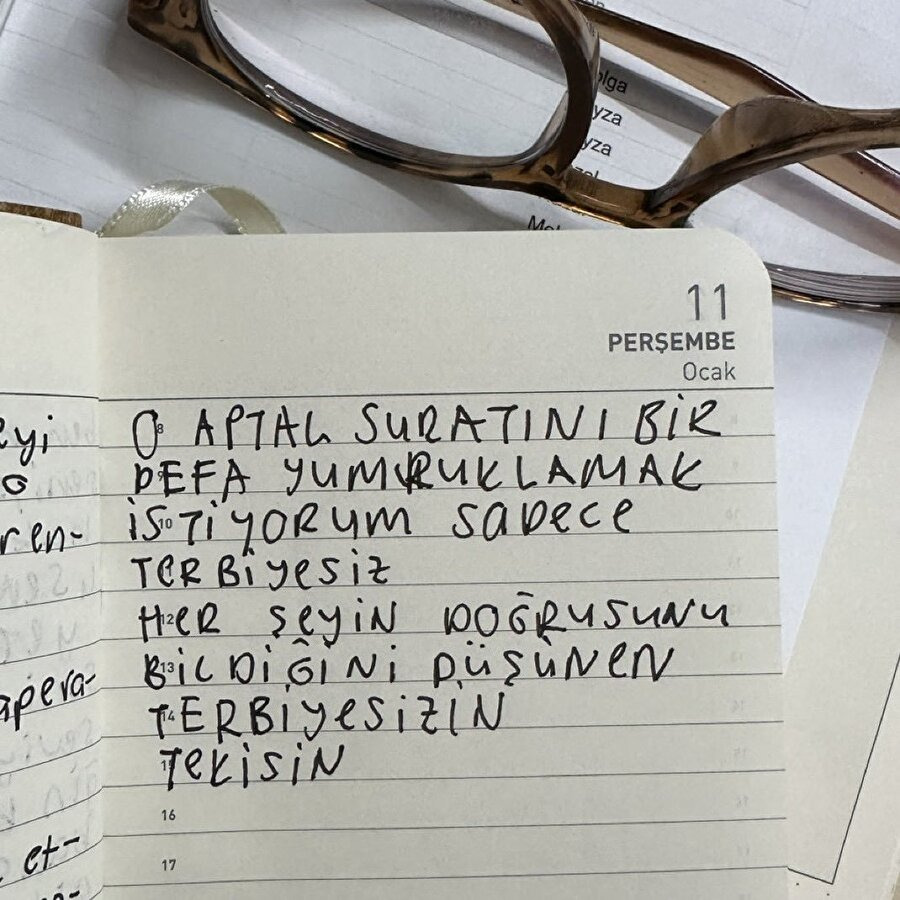 11
PERŞEMBE
Ocak
O APTAL SURATINI BİR
DEFA YUMRUKLAMAK
İSTİYORUM SADECE
TERBİYESİZ
HER ŞEYİN DOĞRUSUNU
BİLDİĞİNİ DÜŞÜNEN
TERBİYESİZİN
TEKİSİN
8
10
12
13
14
16
17
et-